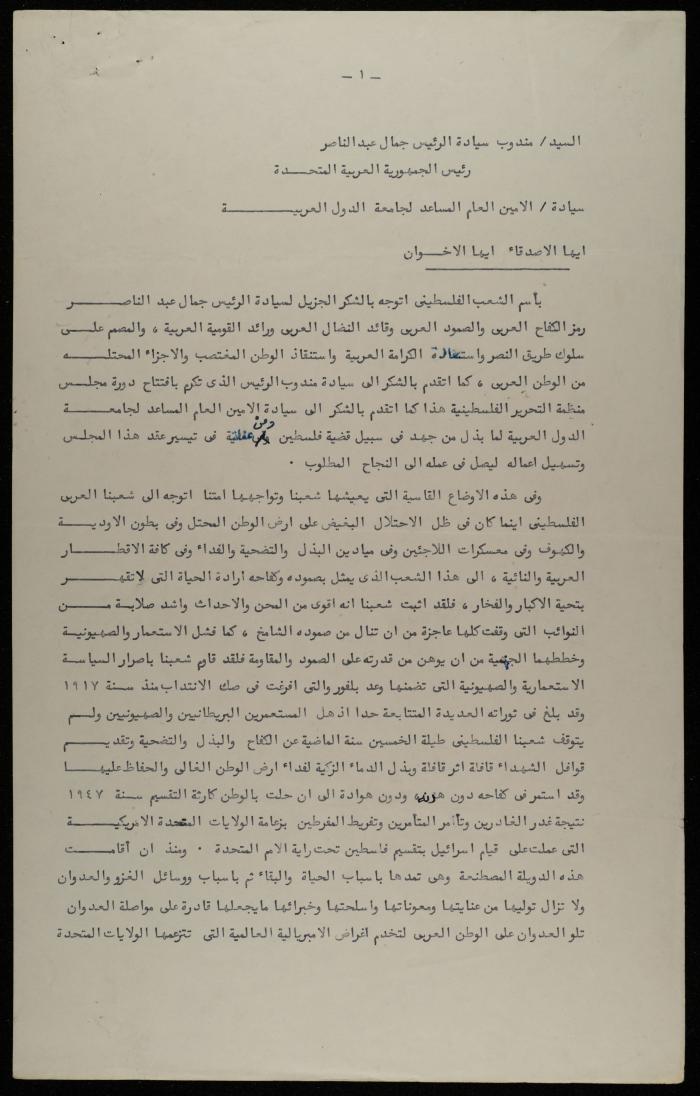 - ١ -
السيد / مندوب سيادة الرئيس جمال عبد الناصر
رئيس الجمهورية العربية المتحـــدة
سيادة / الامين العام المساعد لجامعة الدول العربيـــــــة
ايها الاصدقاء ايها الاخـــوان
بأسم الشعب الفلسطينى اتوجه بالشكر الجزيل لسيادة الرئيس جمال عبد الناصـــــر
رمز الكفاح العربى والصمود العربى وقائد النضال العربى ورائد القومية العربية ، والمصم علـــى
سلوك طريق النصر واستعادة الكرامة العربية واستنقاذ الوطن المغتصب والاجزاء المحتلـــه
من الوطن العربى ، كما اتقدم بالشكر الى سيادة مندوب الرئيس الذى تكرم بافتتاح دورة مجلـــس
منظمة التحرير الفلسطينية هذا كما اتقدم بالشكر الى سيادة الامين العام المساعد لجامعـــــة
الدول العربية لما بذل من جهد فى سبيل قضية فلسطين ومن فى تيسير عقد هذا المجلـــس
وتسهيل اعماله ليصل فى عمله الى النجاح المطلوب .
وفى هذه الاوضاع القاسية التى يعيشها شعبنا وتواجهها امتنا اتوجه الى شعبنا العربى
الفلسطينى اينما كان فى ظل الاحتلال البغيض على ارض الوطن المحتل وفى بطون الاوديـــة
والكهوف وفى معسكرات اللاجئين وفى ميادين البذل والتضحية والفداء وفى كافة الاقطـــــار
العربية والنائية ، الى هذا الشعب الذى يمثل بصموده وكفاحه ارادة الحياة التى لاتقهـــــر
بتحية الاكبار والفخار ، فلقد اثبت شعبنا انه اقوى من المحن والاحداث واشد صلابـــة مـــن
النوائب التى وقفت كلها عاجزة من ان تنال من صموده الشامخ ، كما فشل الاستعمار والصهيونيـــة
وخططهما الجهنمية من ان يوهن من قدرته على الصمود والمقاومة فلقد قاوم شعبنا باصرار السياســـة
الاستعمارية والصهيونية التى تضمنها وعد بلفور والتى افرغت فى صك الانتداب منذ سنة ١٩١٧
وقد بلغ فى ثوراته العديدة المتتابعة حدا اذهل المستعمرين البريطانيين والصهيونيين ولـــم
يتوقف شعبنا الفلسطينى طيلة الخمسين سنة الماضية عن الكفاح والبذل والتضحية وتقديـــم
قوافل الشهداء قافلة اثر قافلة وبذل الدماء الزكية لفداء ارض الوطن الغالى والحفاظ عليهـــا
وقد استمر فى كفاحه دون هدنه ودون هوادة الى ان حلت بالوطن كارثة التقسيم سنة ١٩٤٧
نتيجة غدر الغادرين وتآمر المتآمرين وتفريط المفرطين بزعامة الولايات المتحدة الامريكيـــة
التى عملت على قيام اسرائيل بتقسيم فلسطين تحت راية الامم المتحدة . ومنذ ان أقامـــت
هذه الدويلة المصطنعة وهى تمدها باسباب الحياة والبقاء ثم باسباب ووسائل الغزو والعدوان
ولا تزال توليها من عنايتها ومعوناتها واسلحتها وخبرائها مايجعلها قادرة على مواصلة العدوان
تلو العدوان على الوطن العربى لتخدم اغراض الامبريالية العالمية التى تتزعمها الولايات المتحدة